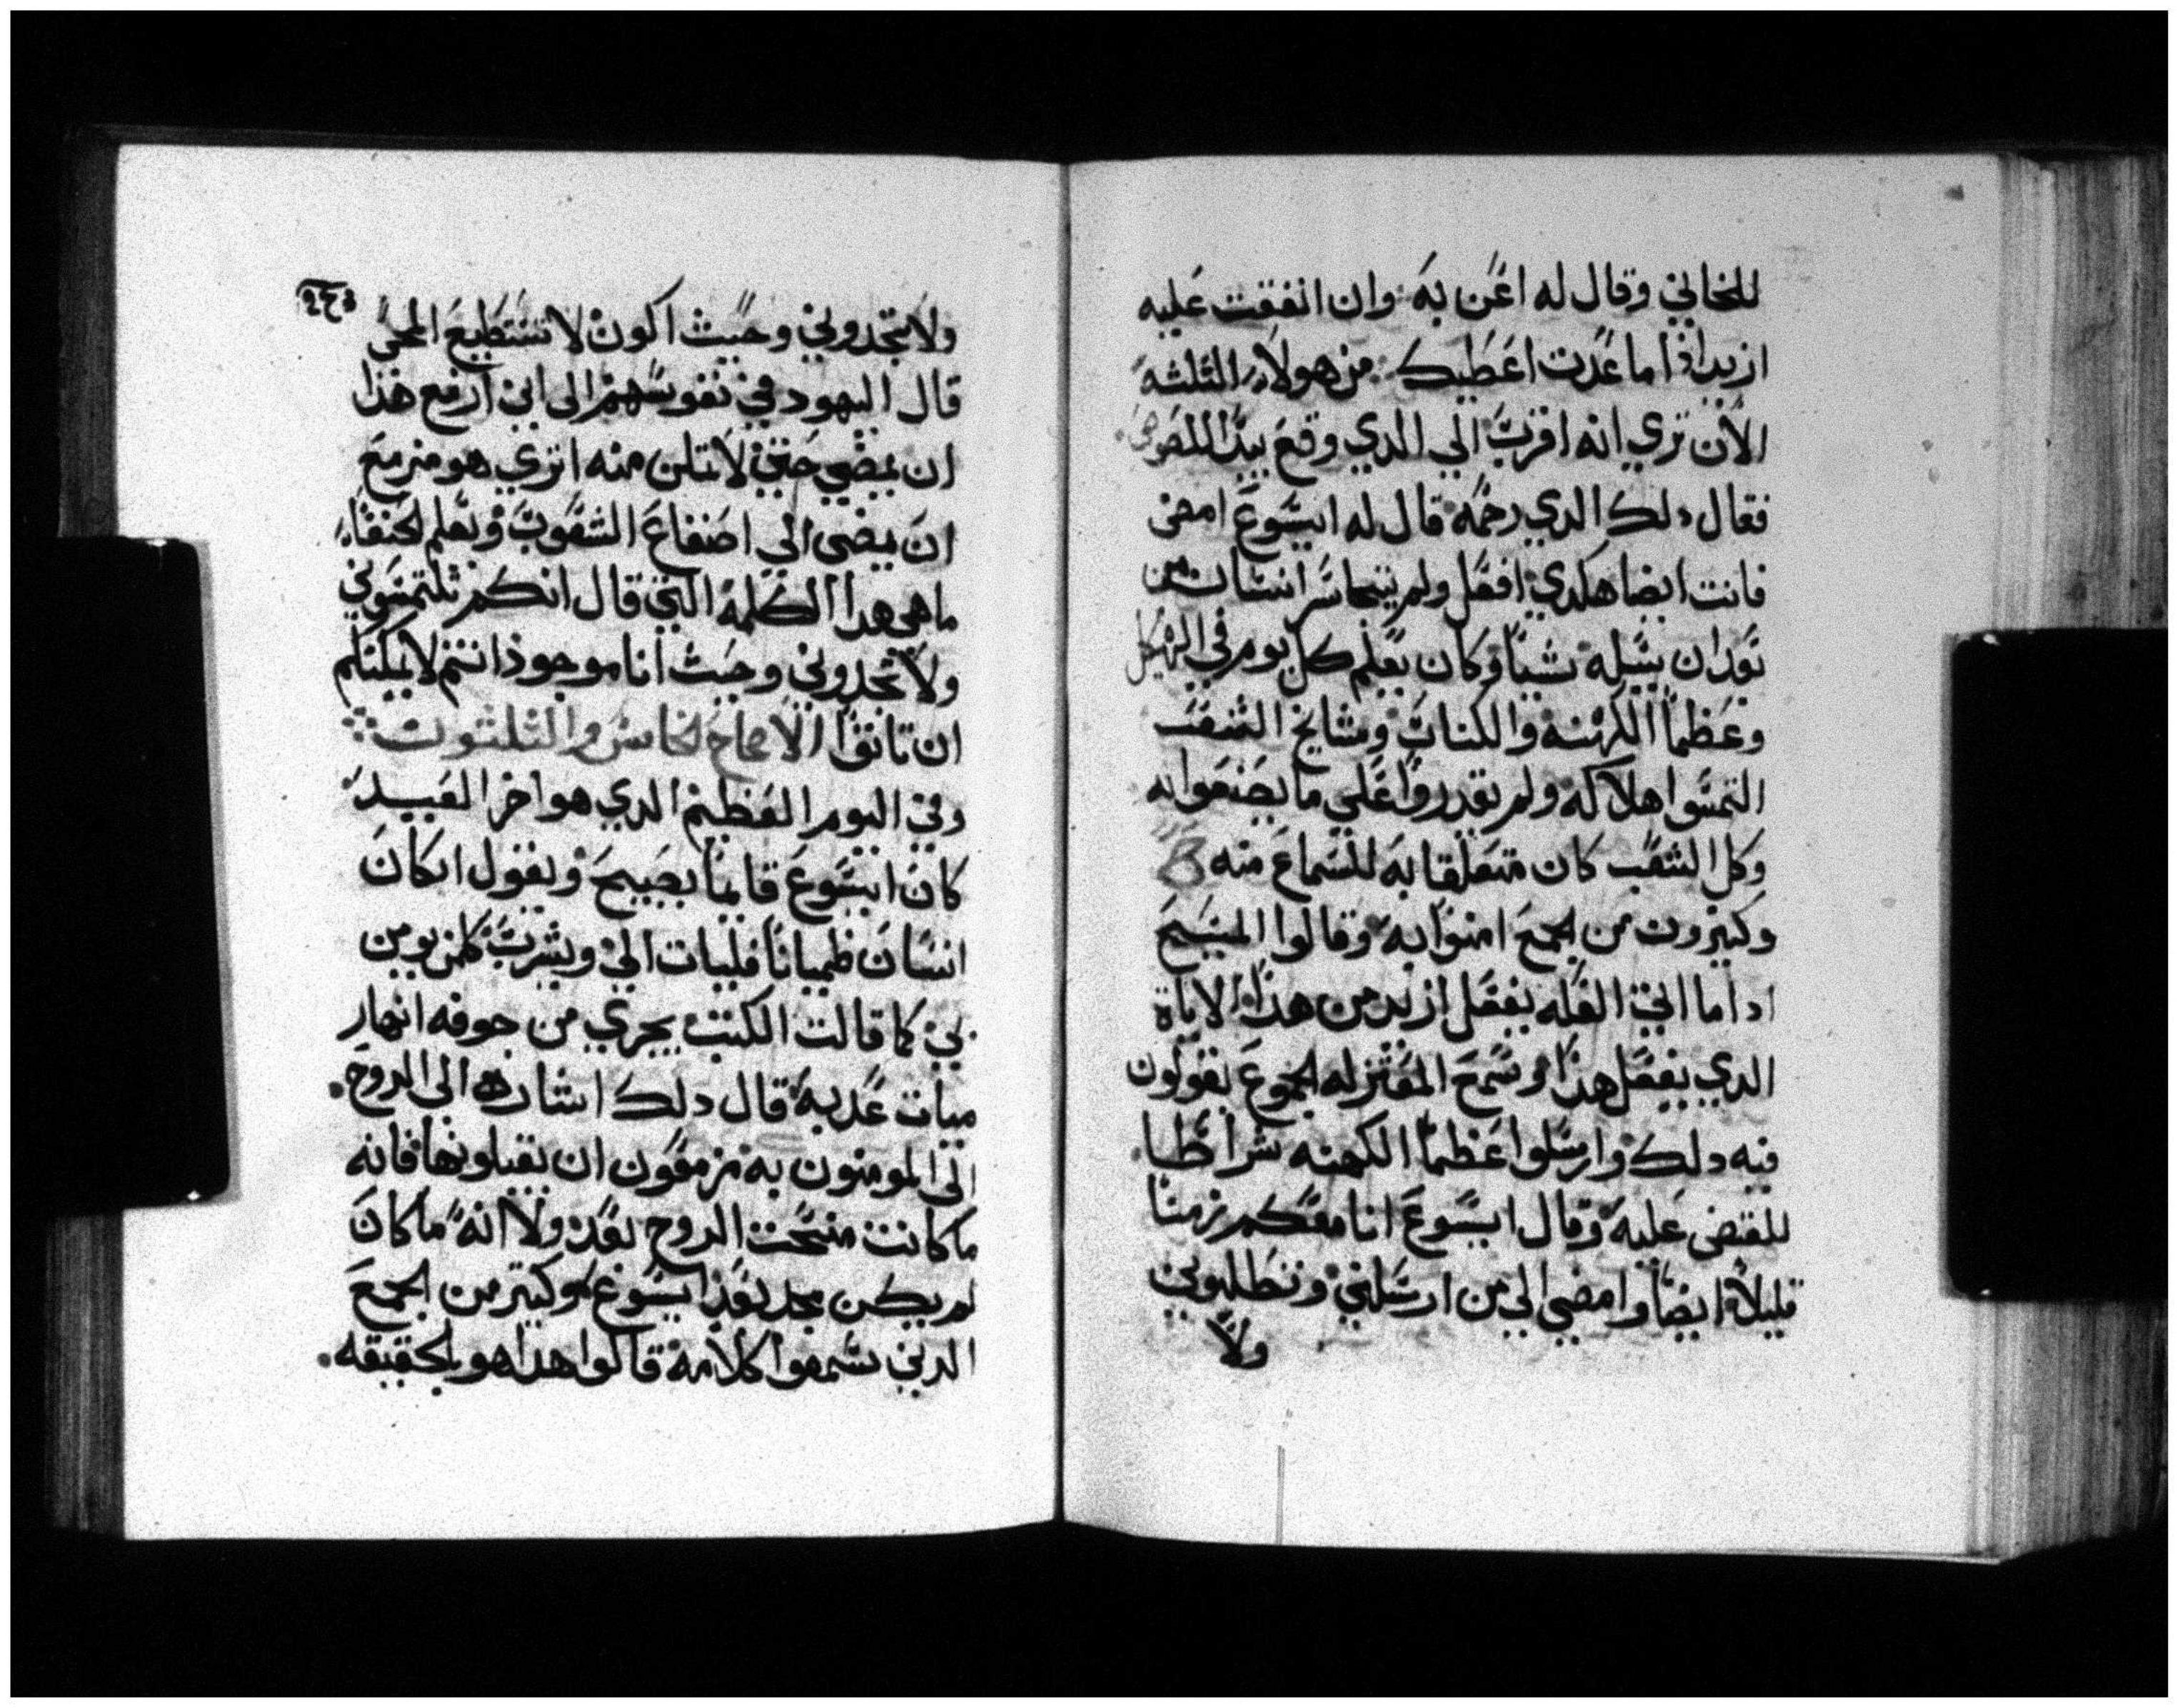 للخاني وقال له اعن به وان انفقت عليه
ازيد اذا ما عدت اعطيك من هولاء الثلثه
الان تري انه اقرب الي الدي وقع بيد اللصوص
فقال دلك الدي رحمه قال له ايسوع امضى
فانت ايضا هكدي افعل ولم يتجاسر انسان من
بعد ان يسله شيا وكان يعلم كل يوم في الهيكل
وعظما الكهنه والكتاب ومشايخ الشعب
التمسوا هلاكه ولم يقدروا على ما يصنعوا به
وكل الشعب كان متعلقا به للسماع منه
وكثيرون من الجمع امنوا به وقالوا المسيح
ادا ما اتي العله يفعل ازيد من هذا الاياة
الدي يفعل هذا وسمع المعتزله الجموع يقولون
فيه دلك وارسلوا عظما الكهنه شراطا
للقبض عليه وقال ايسوع انا معكم زمنا
قليلا ايضا وامضي الي من ارسلني وتطلبوني
ولا
٢٤٩
ولا تجدوني وحيث اكون لا تستطيع المجئ
قال اليهود في نفوسهم الى اين ازمع هذا
ان يمضي حتى لا نتمكن منه اتري هو مزمع
ان يمضى الى اصقاع الشعوب ويعلم الحنفاء
ما هي هدا الكلمه التي قال انكم تلتمسوني
ولا تجدوني وحيث انا موجود انتم لا يمكنكم
ان تاتوا الاصحاح الخامس والثلثون
وفي اليوم العظيم الدي هو اخر العيد
كان ايسوع قايما يصيح ويقول ان كان
انسان ظميانا فليات الي ويشرب كلمن يومن
بي كما قالت الكتب يجري من جوفه انهار
ميات عدبه قال دلك اشاره الى الروح
الى المومنون به مزمعون ان يقبلونها فانه
ما كانت منحت الروح بعد ولا انه ما كان
لم يكن مجد بعد ايسوع وكثير من الجمع
الدين سمعوا كلامه قالوا هدا هو بالحقيقه